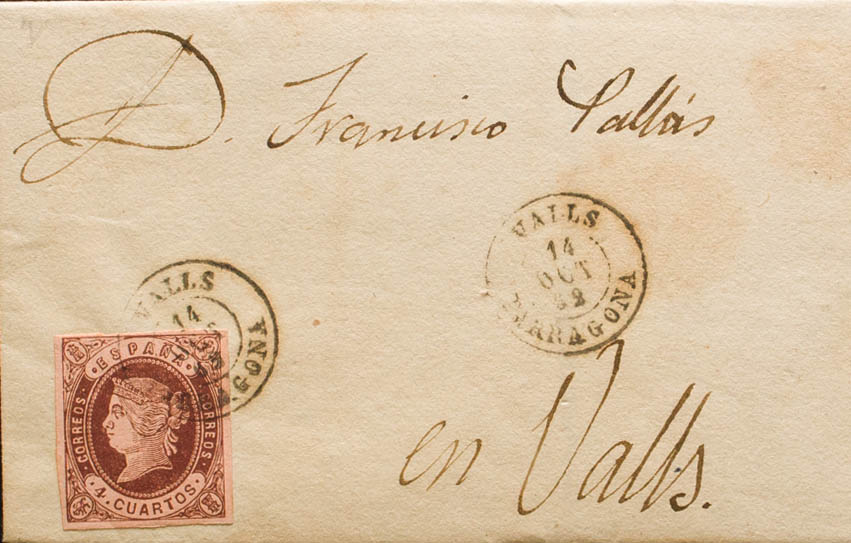 D. Francisco Pallás
VALLS
14
OCT
62
TARRAGONA
VALLS
14
ESPAÑA
CORREOS
CORREOS
4. CUARTOS
en Valls.